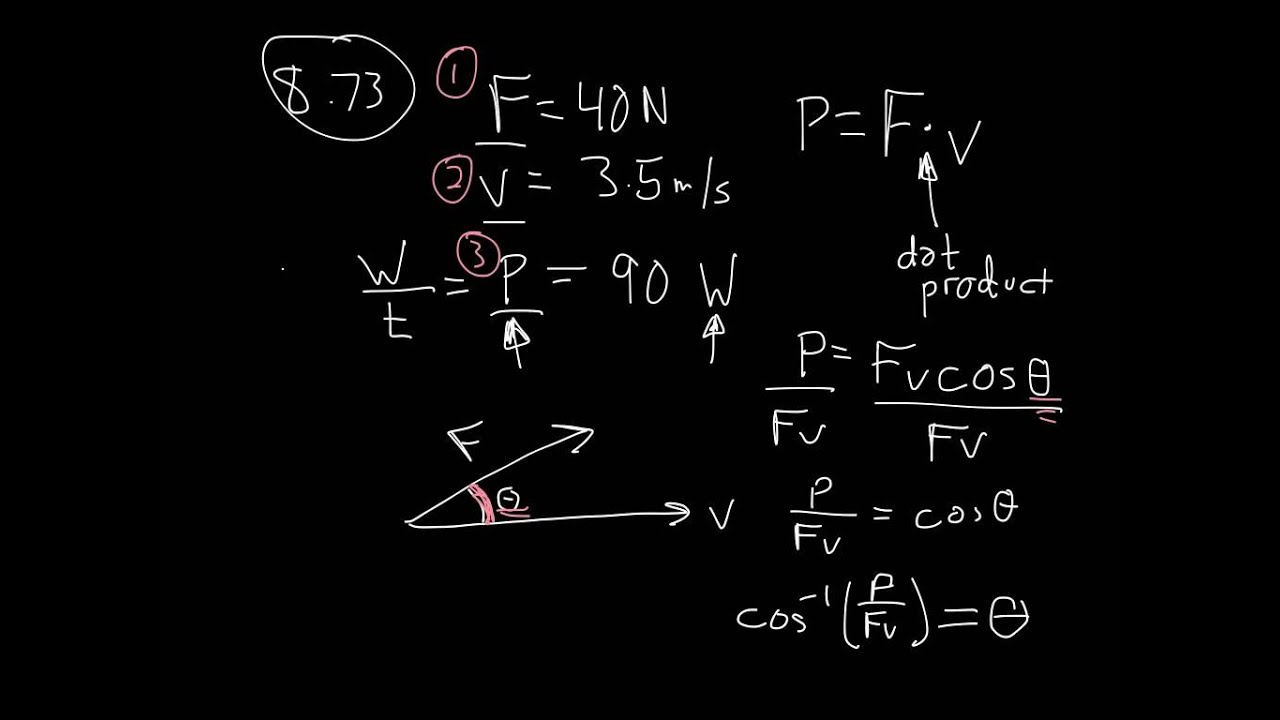 8.73
① F = 40N
② v = 3.5 m/s
W/t = ③ P = 90 W
F
θ
v
P = F · v
dot
product
P/Fv = Fv cos θ/Fv
P/Fv = cos θ
cos⁻¹(P/Fv) = θ